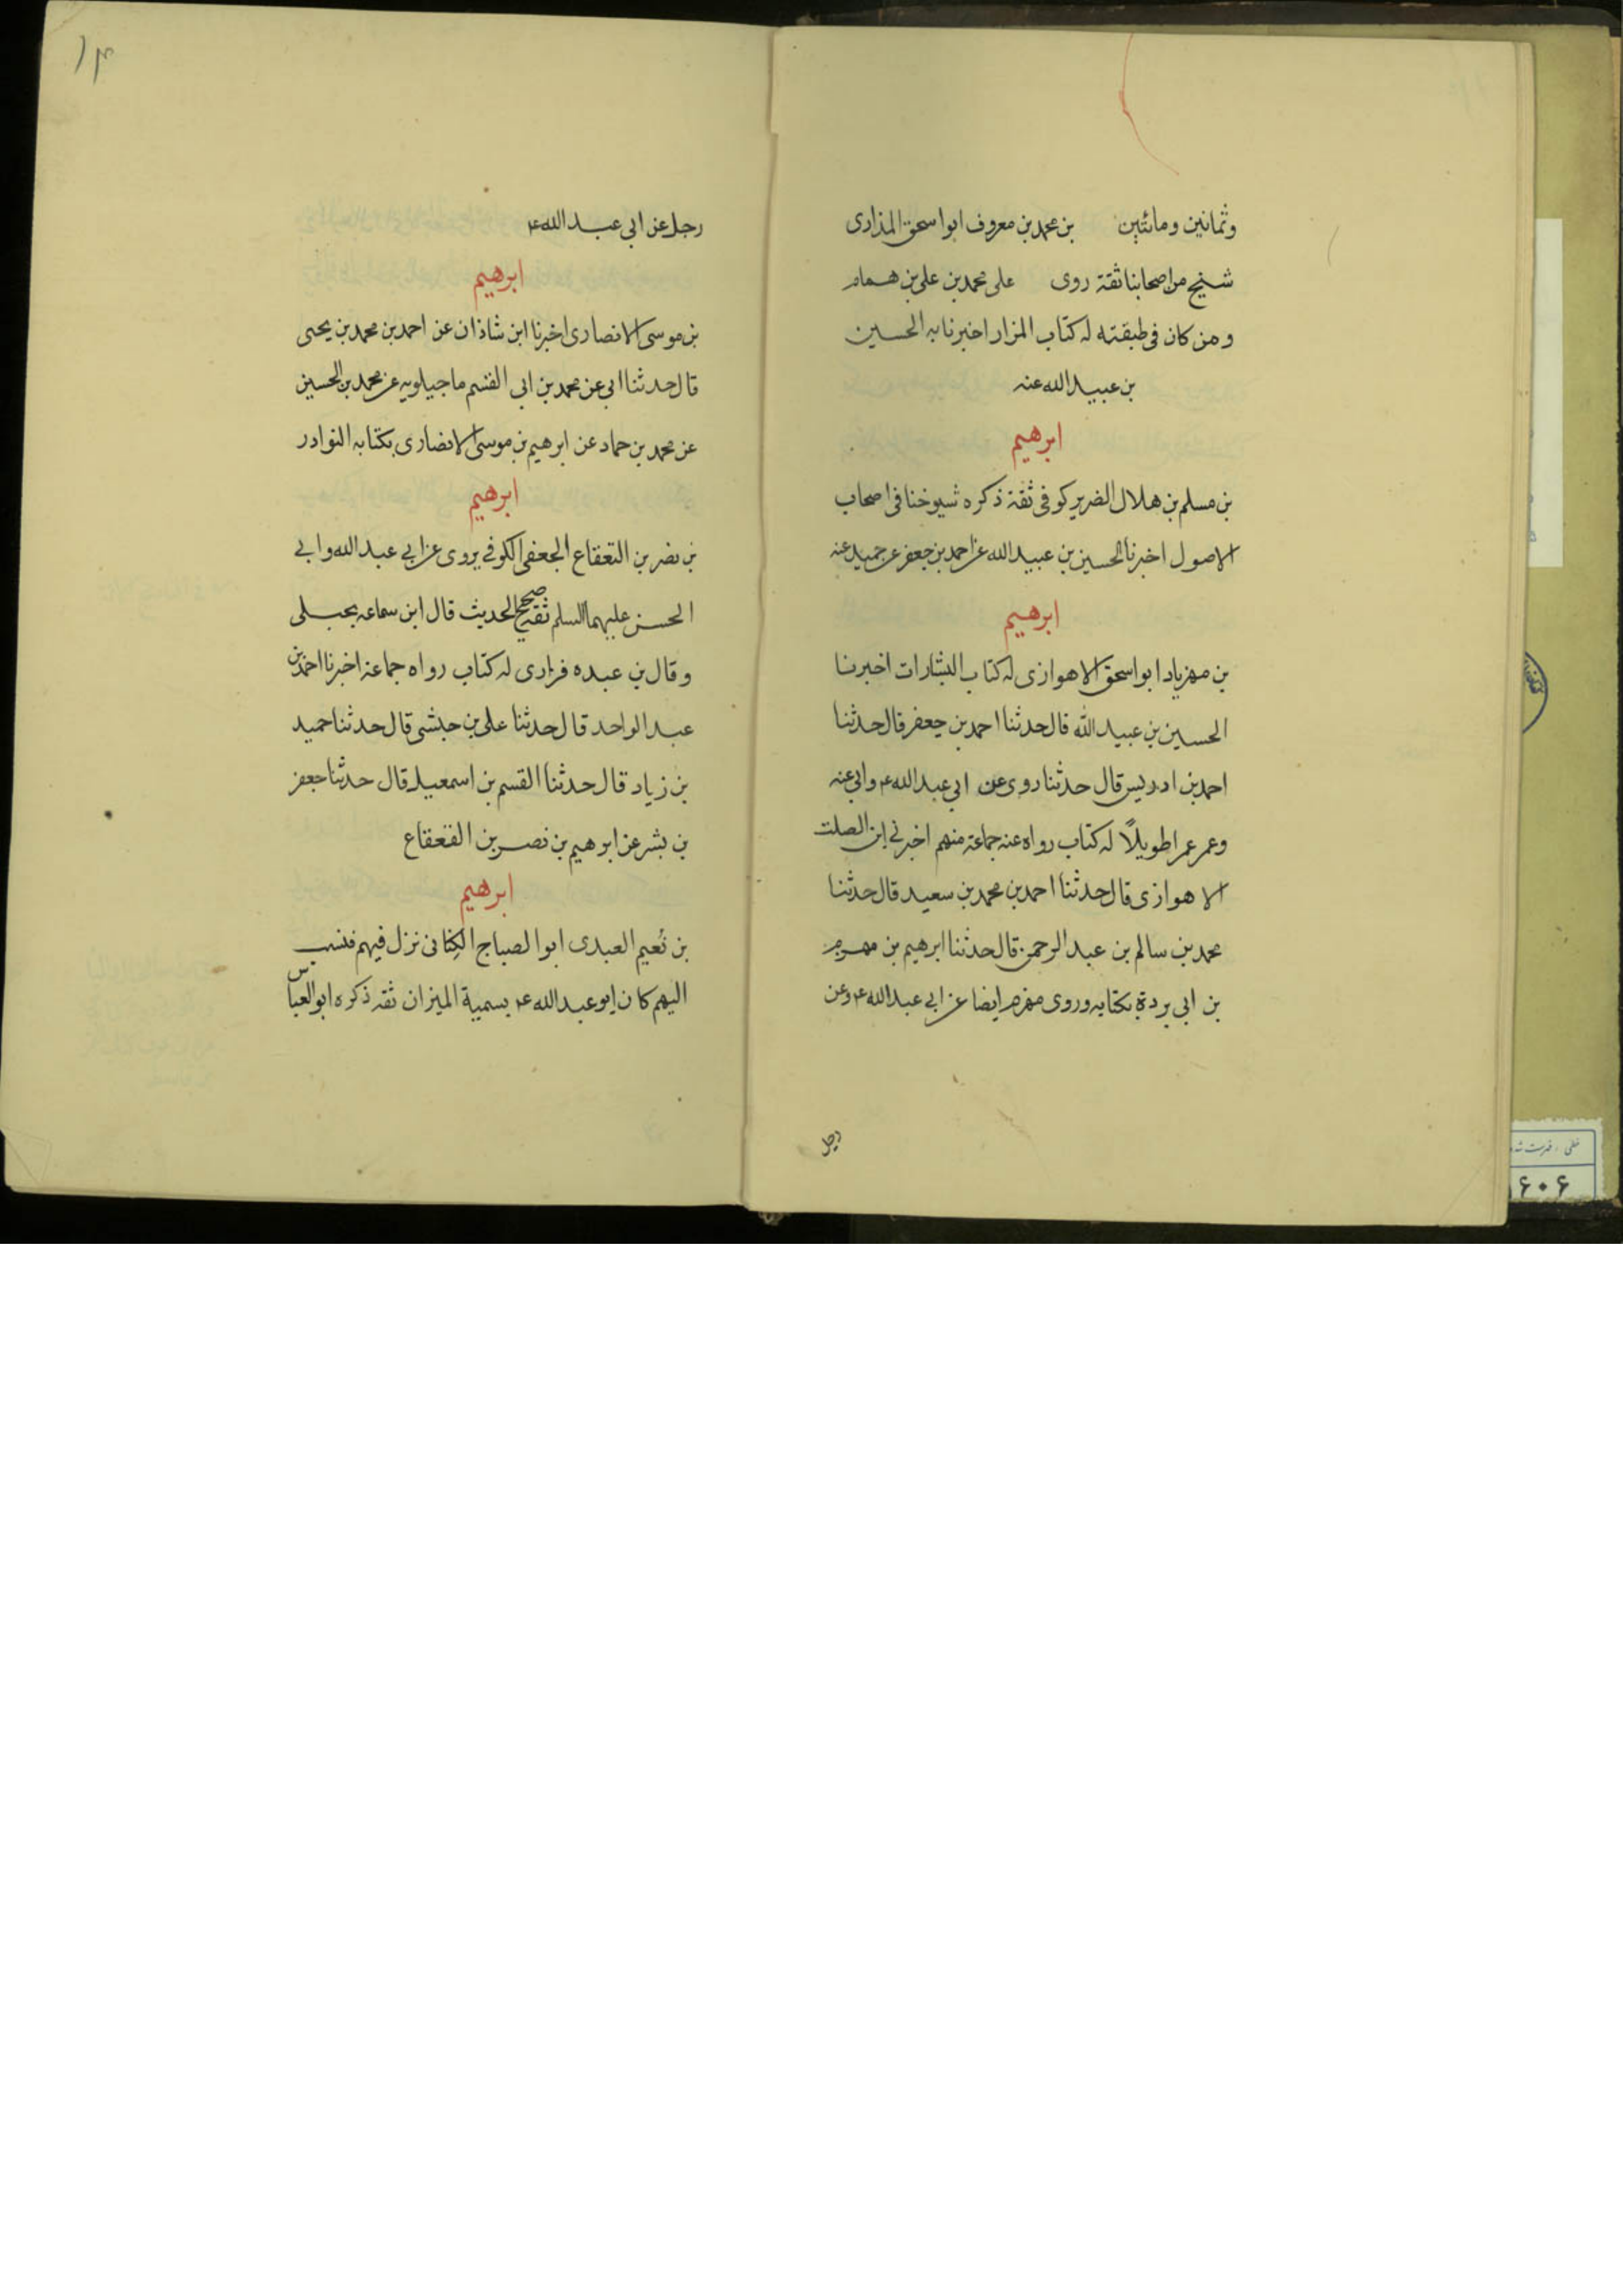 وثمانين ومائتين بن محمد بن معروف ابواسحق المذارى
شيخ من اصحابنا ثقة روى على محمد بن على بن همام
ومن كان فى طبقته له كتاب المزار اخبرنا به الحسين
بن عبيد الله عنه
ابرهيم
بن مسلم بن هلال الضرير كوفى ثقة ذكره شيوخنا فى اصحاب
الاصول اخبرنا الحسين بن عبيد الله عن احمد بن جعفر عن حميد عنه
ابرهيم
بن مهزيار ابواسحق الاهوازى له كتاب البشارات اخبرنا
الحسين بن عبيد الله قال حدثنا احمد بن جعفر قال حدثنا
احمد بن ادريس قال حدثنا روى عن ابى عبد الله ع وابى عنه
وعمر عمرا طويلاً له كتاب رواه عنه جماعة منهم اخبرنى ابن الصلت
الاهوازى قال حدثنا احمد بن محمد بن سعيد قال حدثنا
محمد بن سالم بن عبد الرحمن قال حدثنا ابرهيم بن مهزم
بن ابى بردة بكتابه وروى مهزم ايضا عن ابى عبد الله ع وعن
رجل
١٣
رجل عن ابى عبد الله ع
ابرهيم
بن موسى الانصارى اخبرنا ابن شاذان عن احمد بن محمد بن يحيى
قال حدثنا ابى عن محمد بن ابى القسم ماجيلويه عن محمد بن الحسين
عن محمد بن حماد عن ابرهيم بن موسى الانصارى بكتابه النوادر
ابرهيم
بن نضر بن القعقاع الجعفى الكوفى يروى عن ابى عبد الله وابى
الحسن عليهما السلم ثقة صحيح الحديث قال ابن سماعه بجلى
وقال بن عبده فزارى له كتاب رواه جماعة اخبرنا احمد بن
عبد الواحد قال حدثنا على بن حبشى قال حدثنا حميد
بن زياد قال حدثنا القسم بن اسمعيل قال حدثنا جعفر
بن بشر عن ابرهيم بن نصر بن القعقاع
ابرهيم
بن نُعيم العبدى ابوالصباح الكِنانى نزل فيهم فنسب
اليهم كان ابوعبد الله ع يسميه الميزان ثقه ذكره ابوالعباس
٦٠٦